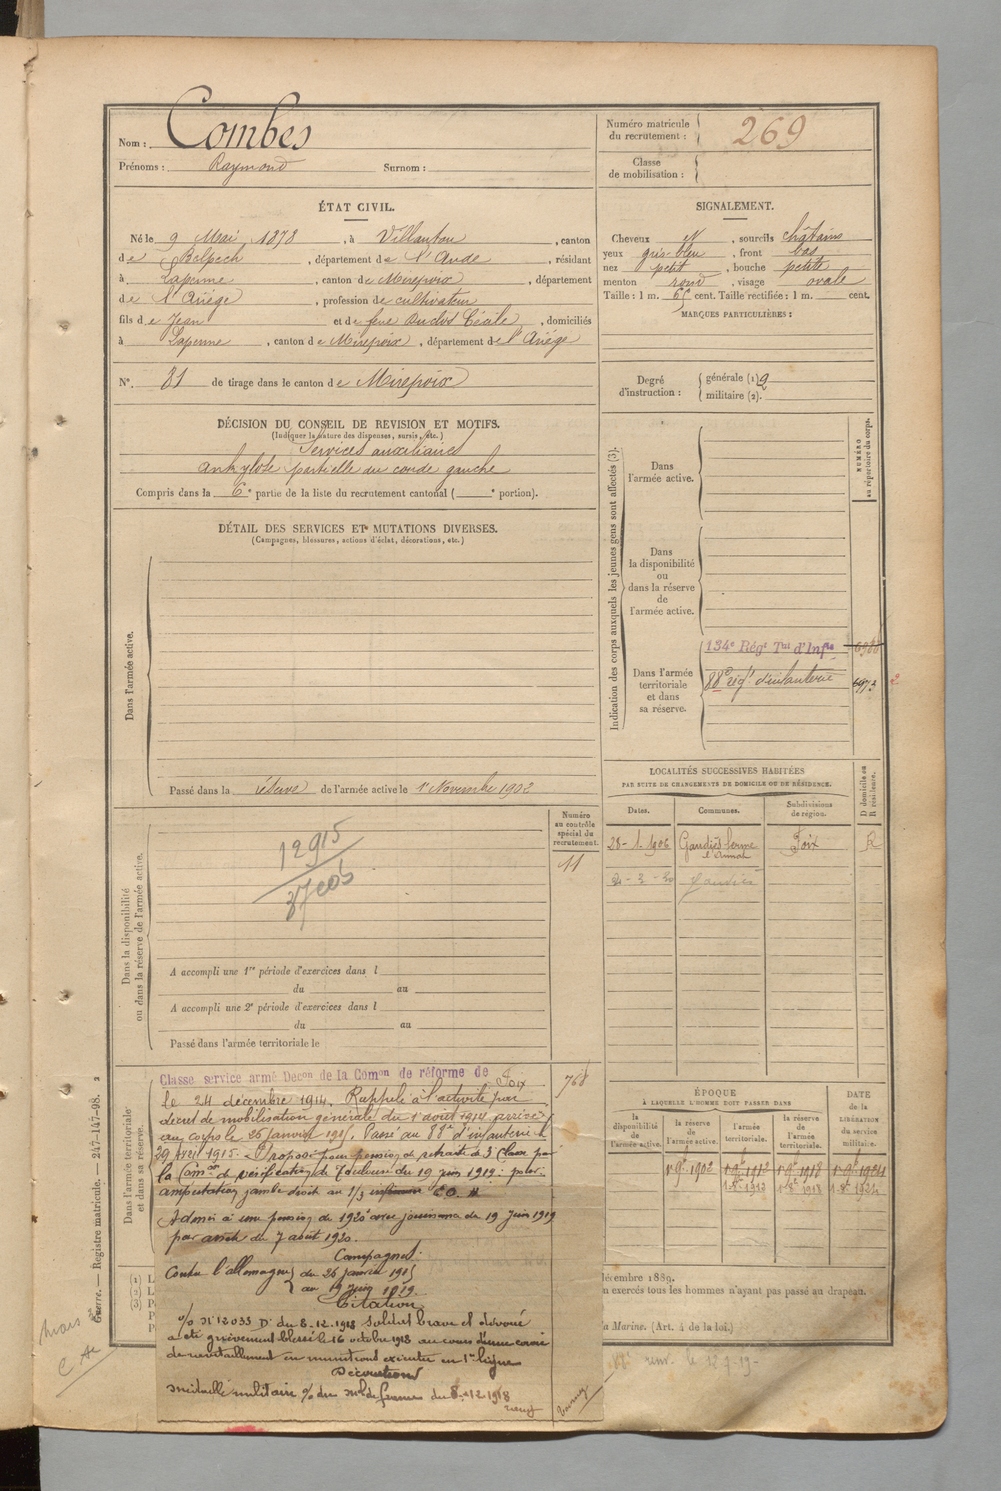 Nom : Combes
Prénoms : Raymond Surnom :
Numéro matricule du recrutement : 269
Classe de mobilisation :
ÉTAT CIVIL.
Né le 9 Mai 1878, à Villautou, canton
de Belpech, département de l'Aude, résidant
à Lapenne, canton de Mirepoix, département
de l'Ariège, profession de cultivateur
fils de Jean et de feue Duclos Cécile, domiciliés
à Lapenne, canton de Mirepoix, département de l'Ariège
N°. 81 de tirage dans le canton de Mirepoix
SIGNALEMENT.
Cheveux N, sourcils châtains
yeux gris-bleu, front bas
nez petit, bouche petite
menton rond, visage ovale
Taille : 1 m. cent. Taille rectifiée : 1 m. cent.
MARQUES PARTICULIÈRES :
Degré d'instruction : générale (1) 2
militaire (2).
DÉCISION DU CONSEIL DE REVISION ET MOTIFS.
(Indiquer la nature des dispenses, sursis, etc.)
Services auxiliaires
Ankylose partielle du coude gauche
Compris dans la 6e partie de la liste du recrutement cantonal ( e portion).
DÉTAIL DES SERVICES ET MUTATIONS DIVERSES.
(Campagnes, blessures, actions d'éclat, décorations, etc.)
Dans l'armée active.
Passé dans la réserve de l'armée active le 1er Novembre 1902
Indication des corps auxquels les jeunes gens sont affectés (3).
NUMÉRO au répertoire du corps.
Dans l'armée active.
Dans la disponibilité ou dans la réserve de l'armée active.
Dans l'armée territoriale et dans sa réserve.
134e Régt Tal d'Infie
88e régt d'infanterie
Dans la disponibilité ou dans la réserve de l'armée active.
Numéro au contrôle spécial du recrutement.
11
12915
A accompli une 1re période d'exercices dans l
du au
A accompli une 2e période d'exercices dans l
du au
Passé dans l'armée territoriale le
LOCALITÉS SUCCESSIVES HABITÉES
PAR SUITE DE CHANGEMENTS DE DOMICILE OU DE RÉSIDENCE.
Dates. Communes. Subdivisions de région. D domicile ou R résidence.
28-1-1906 Gaudiès ferme Foix R
Gaudiès
Dans l'armée territoriale et dans sa réserve.
Classe service armé Décon de la Comon de réforme de Foix 768
le 24 décembre 1914. Rappelé à l'activité par
décret de mobilisation générale du 1er août 1914 arrivé
au corps le 26 janvier 1915. Passé au 88e d'infanterie le
29 Avril 1915. Proposé pour pension de retraite de 3e Classe par
la Comon de vérification de Toulouse du 19 juin 1919 : pour
amputation jambe droite au 1/3
Admis à une pension de 1920 avec jouissance du 19 Juin 1919
par arrêté du 7 août 1920.
Campagnes :
Contre l'allemagne du 26 janvier 1915
au 19 juin 1919.
Citation
% N° 12033 D° du 8.12.1918 Soldat brave et dévoué
a été grièvement blessé le 16 octobre 1918 au cours d'une corvée
de ravitaillement en munitions exécutée en 1re ligne
Décorations
médaille militaire % du Mal de france du 8-12 1918
ÉPOQUE
À LAQUELLE L'HOMME DOIT PASSER DANS
la disponibilité de l'armée active. la réserve de l'armée active. l'armée territoriale. la réserve de l'armée territoriale.
DATE de la LIBÉRATION du service militaire.
1er 9bre 1902 1er 9bre 1912 1er 9bre 1918 1er 9bre 1924
1er 8bre 1912 1er 8bre 1918 1er 8bre 1924
décembre 1889.
en exercés tous les hommes n'ayant pas passé au drapeau.
la Marine. (Art. 4 de la loi.)
Guerre. — Registre matricule. — 247-147-98. 2